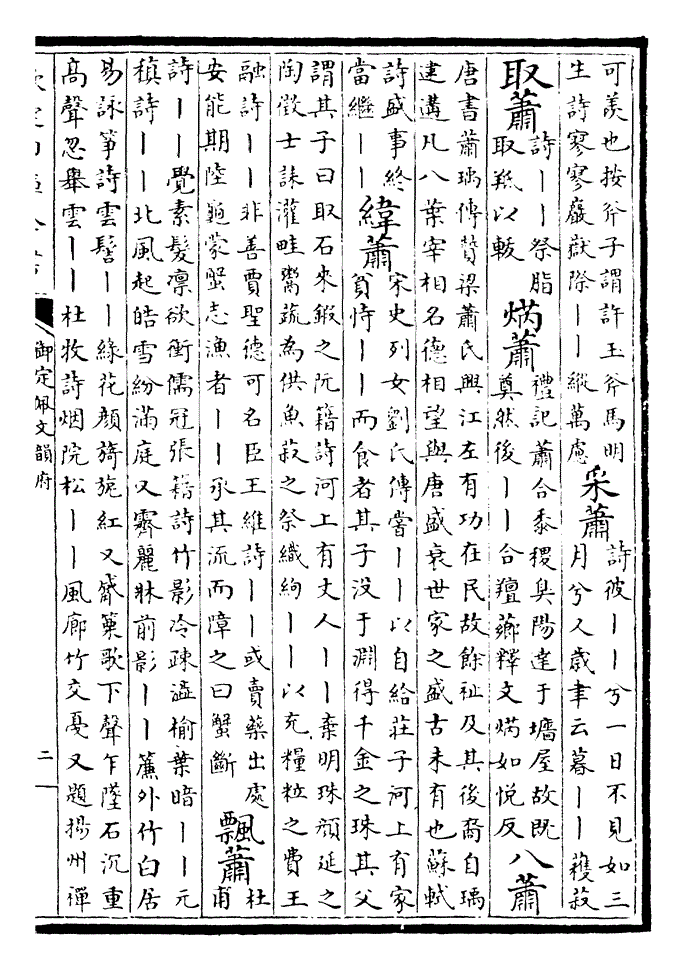 可羨也按斧子謂許玉斧馬明
生詩寥寥巖嶽際丨丨縱萬慮
采蕭
詩彼丨丨兮一日不見如三
月兮又歲聿云暮丨丨穫菽
取蕭
詩丨丨祭脂
取羝以軷
焫蕭
禮記蕭合黍稷臭陽達于墻屋故既
奠然後丨丨合羶薌釋文焫如悅反
八蕭
唐書蕭瑀傳贊梁蕭氏興江左有功在民故餘祉及其後裔自瑀
逮遘凡八葉宰相名德相望與唐盛衰世家之盛古未有也蘇軾
詩盛事終
當繼丨丨
緯蕭
宋史列女劉氏傳嘗丨丨以自給莊子河上有家
貧恃丨丨而食者其子没于淵得千金之珠其父
謂其子曰取石來鍜之阮籍詩河上有丈人丨丨棄明珠顔延之
陶徵士誄灌畦鬻蔬為供魚菽之祭織絇丨丨以充糧粒之費王
融詩丨丨非善賈聖德可名臣王維詩丨丨或賣藥出處
安能期陸龜蒙蟹志漁者丨丨承其流而障之曰蟹斷
飄蕭
杜
甫
詩丨丨覺素髮凛欲衝儒冠張籍詩竹影冷疎澁榆葉暗丨丨元
稹詩丨丨北風起皓雪紛滿庭又霽麗牀前影丨丨簾外竹白居
易詠箏詩雲髻丨丨緑花顔旖旎紅又觱篥歌下聲乍墜石沉重
高聲忽舉雲丨丨杜牧詩烟院松丨丨風廊竹交戞又題揚州禪
欽定四庫全書
御定佩文韻府
二